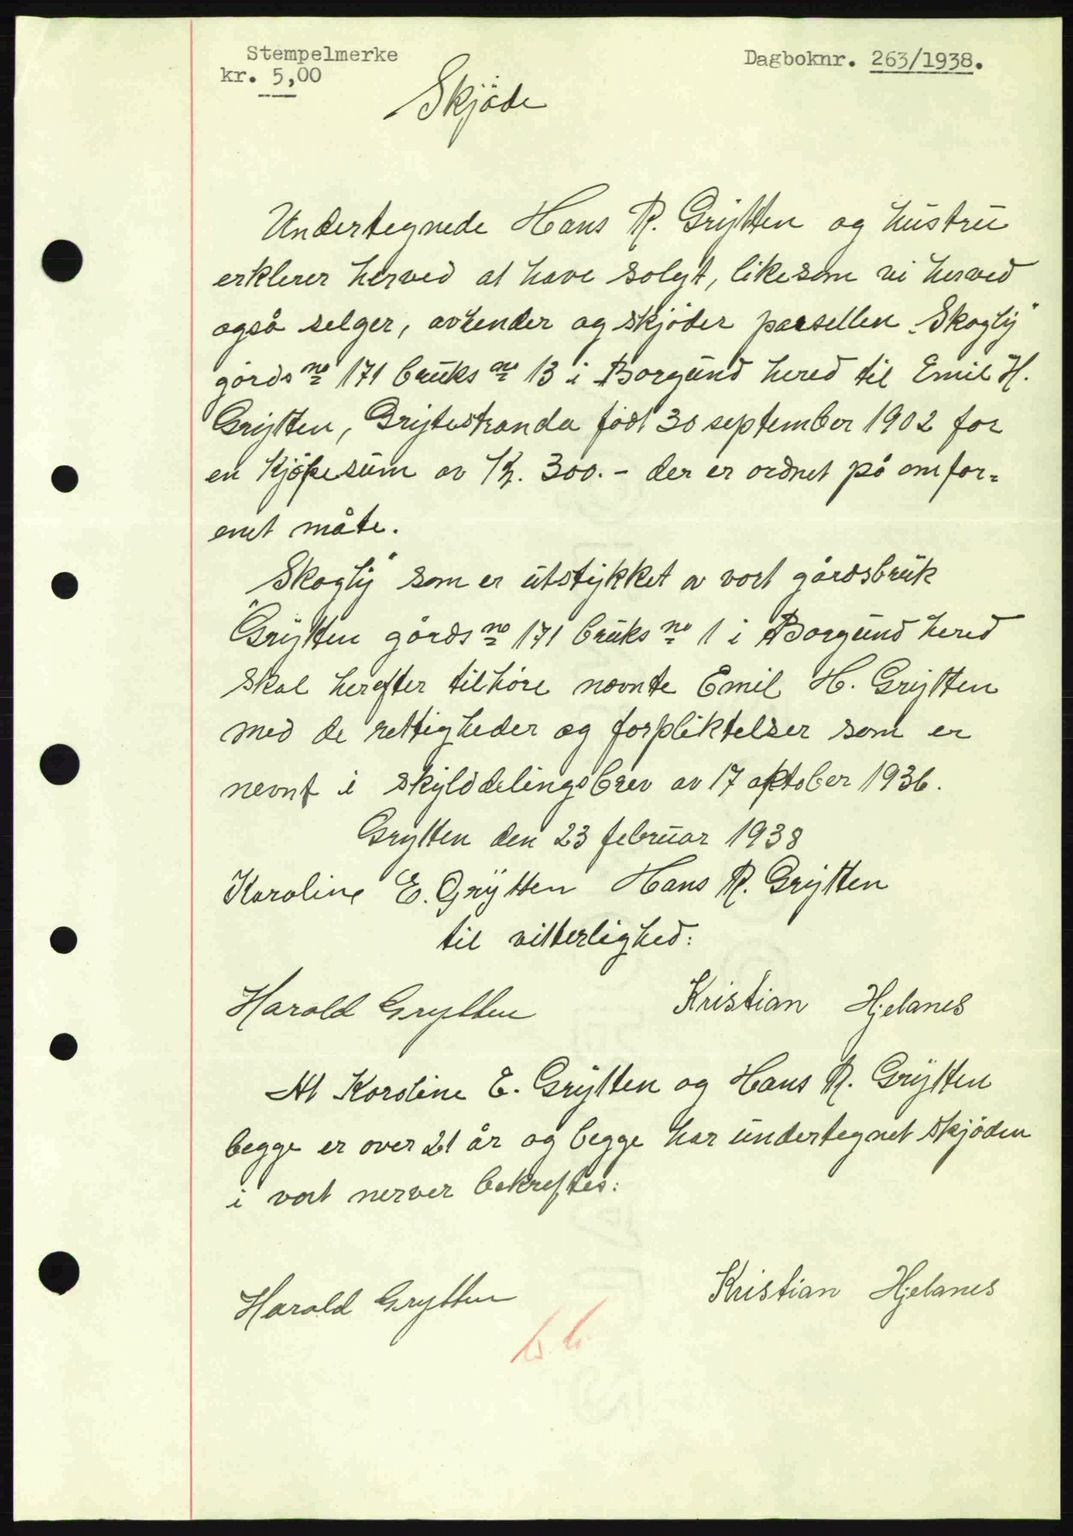 Stempelmerke
kr. 5,00
Dagboknr. 263/1938.
Skjøde
Undertegnede Hans R. Grytten og hustru
erklerer herved at have solgt, likesom vi herved
også selger, avhender og skjøder parsellen „Skogly"
gårds no 171 bruks no 13 i Borgund hered til Emil H.
Grytten, Grytestranda født 30 september 1902 for
en kjøpesum av Kr. 300.- der er ordnet på omfor=
enet måte.
„Skogly" som er utstykket av vort gårdsbruk
Grytten gårds no 171 bruks no 1 i Borgund hered
skal herefter tilhøre nævnte Emil H. Grytten
med de rettigheder og forpliktelser som er
nevnt i skylddelingsbrev av 17 oktober 1936.
Grytten den 23 februar 1938
Karoline E. Grytten Hans R. Grytten
til vitterlighed:
Harald Grytten Kristian Hjelanes
At Karoline E. Grytten og Hans R. Grytten
begge er over 21 år og begge har undertegnet skjøden
i vort nerver bekreftes:
Harald Grytten Kristian Hjelanes